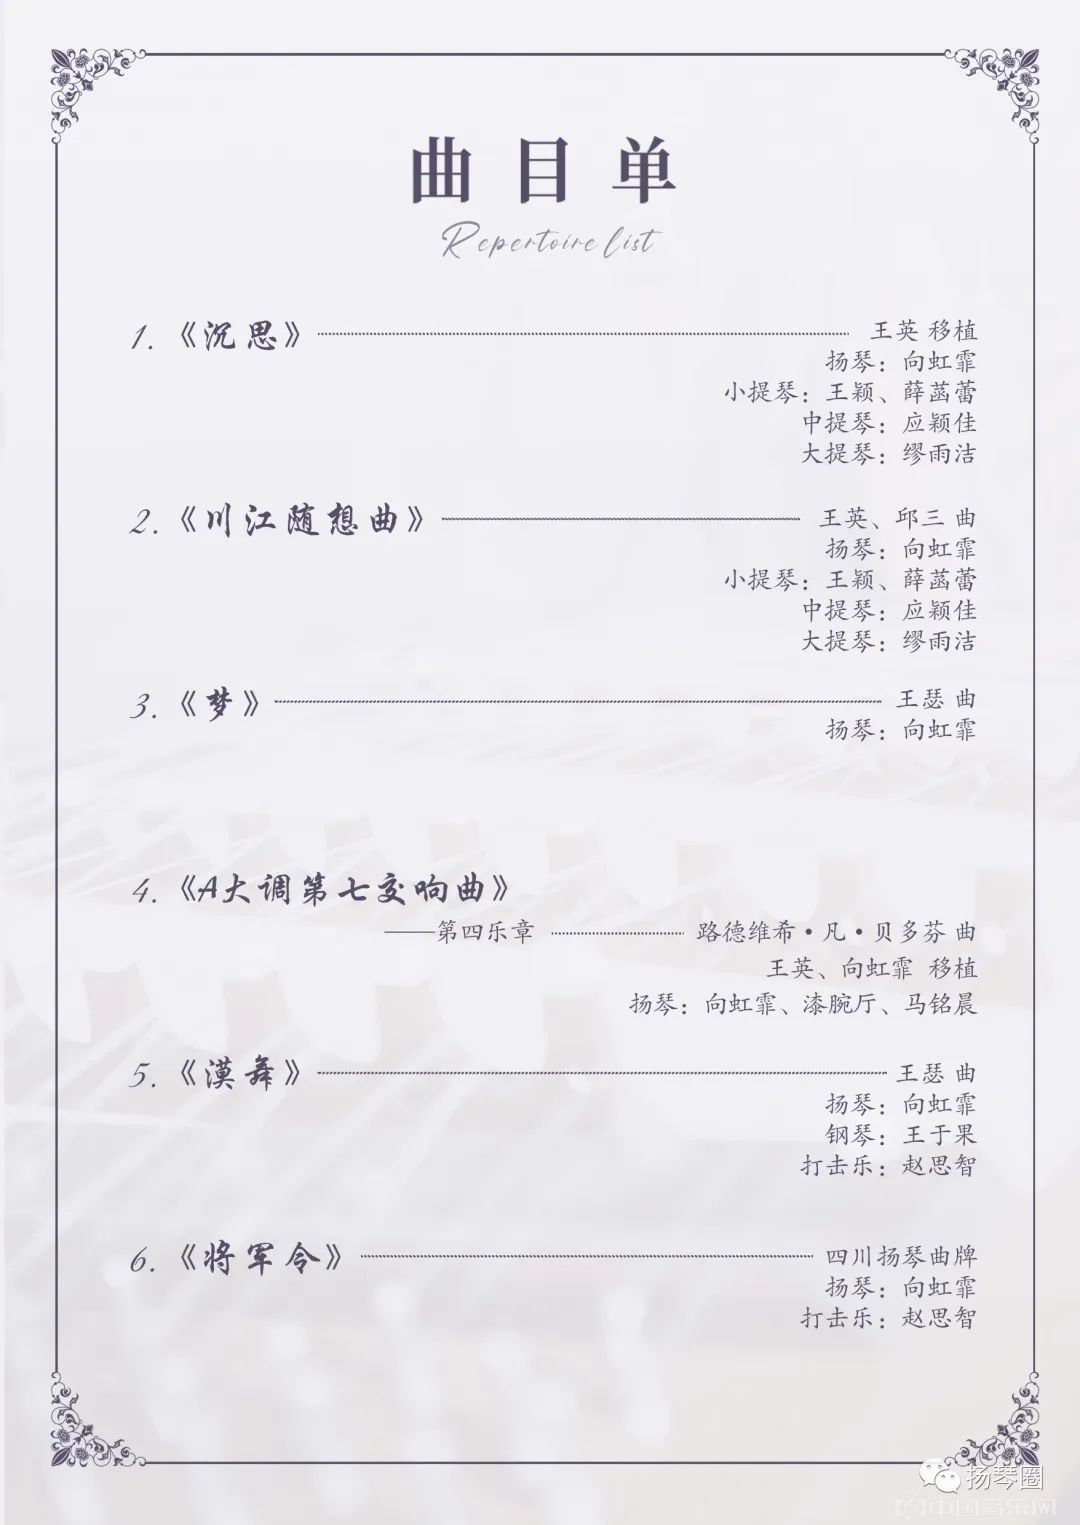 曲目单
Repertoire list
1.《沉思》 王英 移植
扬琴：向虹霏
小提琴：王颖、薛菡蕾
中提琴：应颖佳
大提琴：缪雨洁
2.《川江随想曲》 王英、邱三 曲
扬琴：向虹霏
小提琴：王颖、薛菡蕾
中提琴：应颖佳
大提琴：缪雨洁
3.《梦》 王瑟 曲
扬琴：向虹霏
4.《A大调第七交响曲》
——第四乐章 路德维希·凡·贝多芬 曲
王英、向虹霏 移植
扬琴：向虹霏、漆腕厅、马铭晨
5.《漠舞》 王瑟 曲
扬琴：向虹霏
钢琴：王于果
打击乐：赵思智
6.《将军令》 四川扬琴曲牌
扬琴：向虹霏
打击乐：赵思智
扬琴圈
中国音乐网